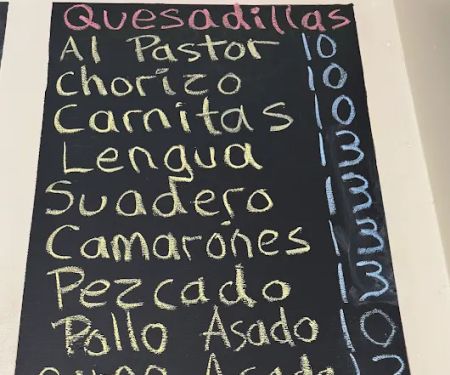 Quesadillas
Al Pastor 10
Chorizo 10
Carnitas 10
Lengua 13
Suadero 13
Camarones 13
Pezcado 13
Pollo Asado 10
Asada